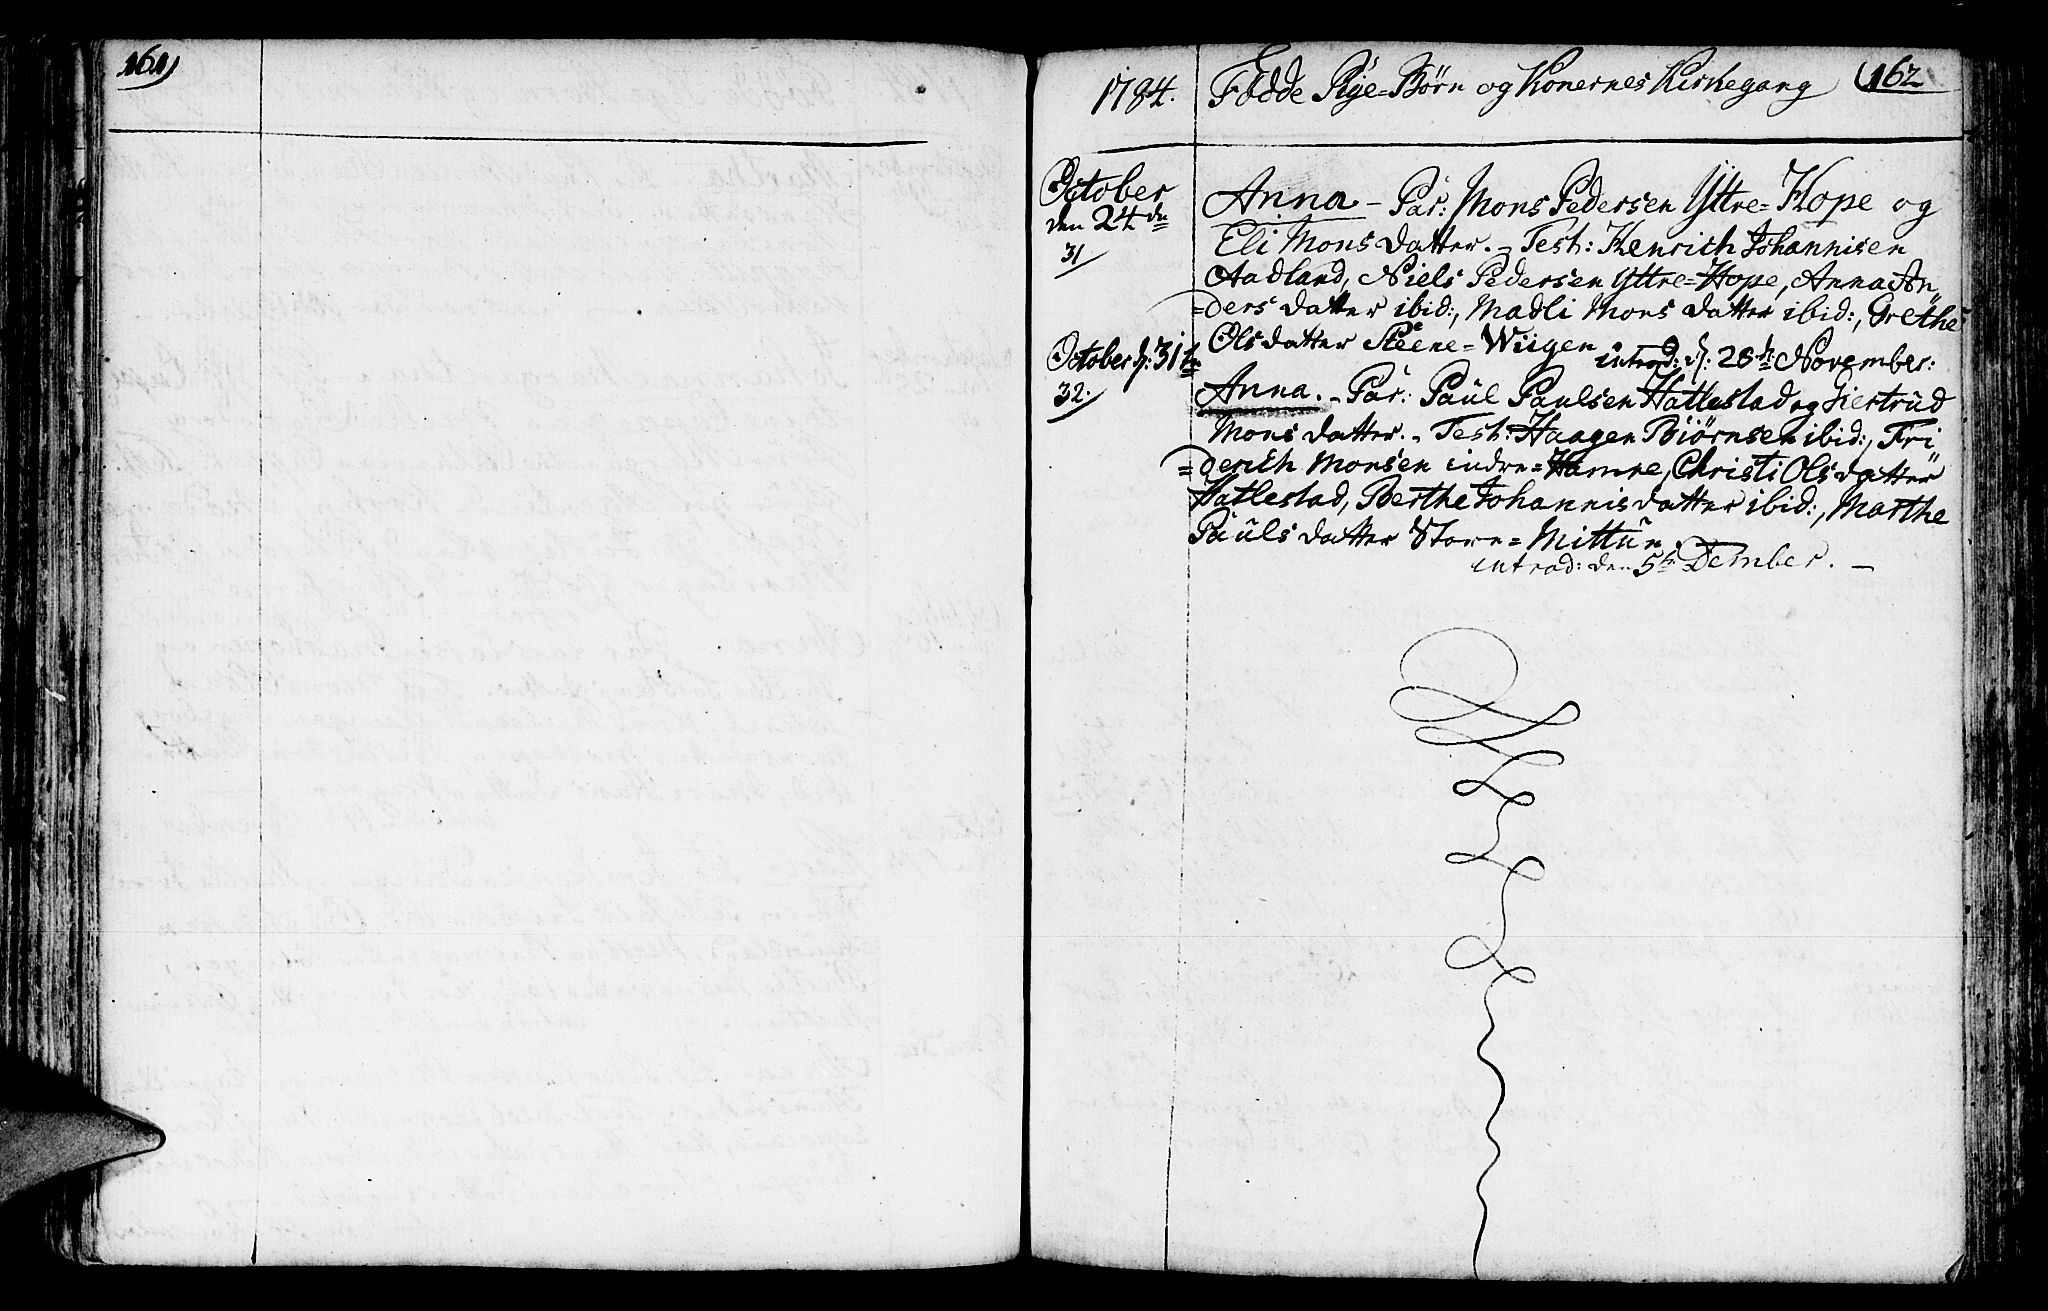 161)
1784. Födde Pige-Börn og Konernes Kirkegang (162
October
den 24de
31
Anna - Par: Mons Pedersen Yttre-Hope og
Eli Mons datter. - Test: Henrich Johannisen
Aadland, Niels Pedersen Yttre-Hope, Anna An"
=ders datter ibid:, Madli Mons datter ibid:, Grethe
Ols datter Steene-Wiigen
introd: d: 28de November:
October d: 31te
32.
Anna. - Par: Paul Paulsen Hatlestad og Giertrud
Mons datter. - Test: Haagen Biörnsen ibid:, Fri"
=derich Monsen indre=Hamre, Christi Ols datter
Hatlestad, Berthe Johannis datter ibid:, Marthe
Pauls datter Store=Mittun.
introd: den 5te Dember. -